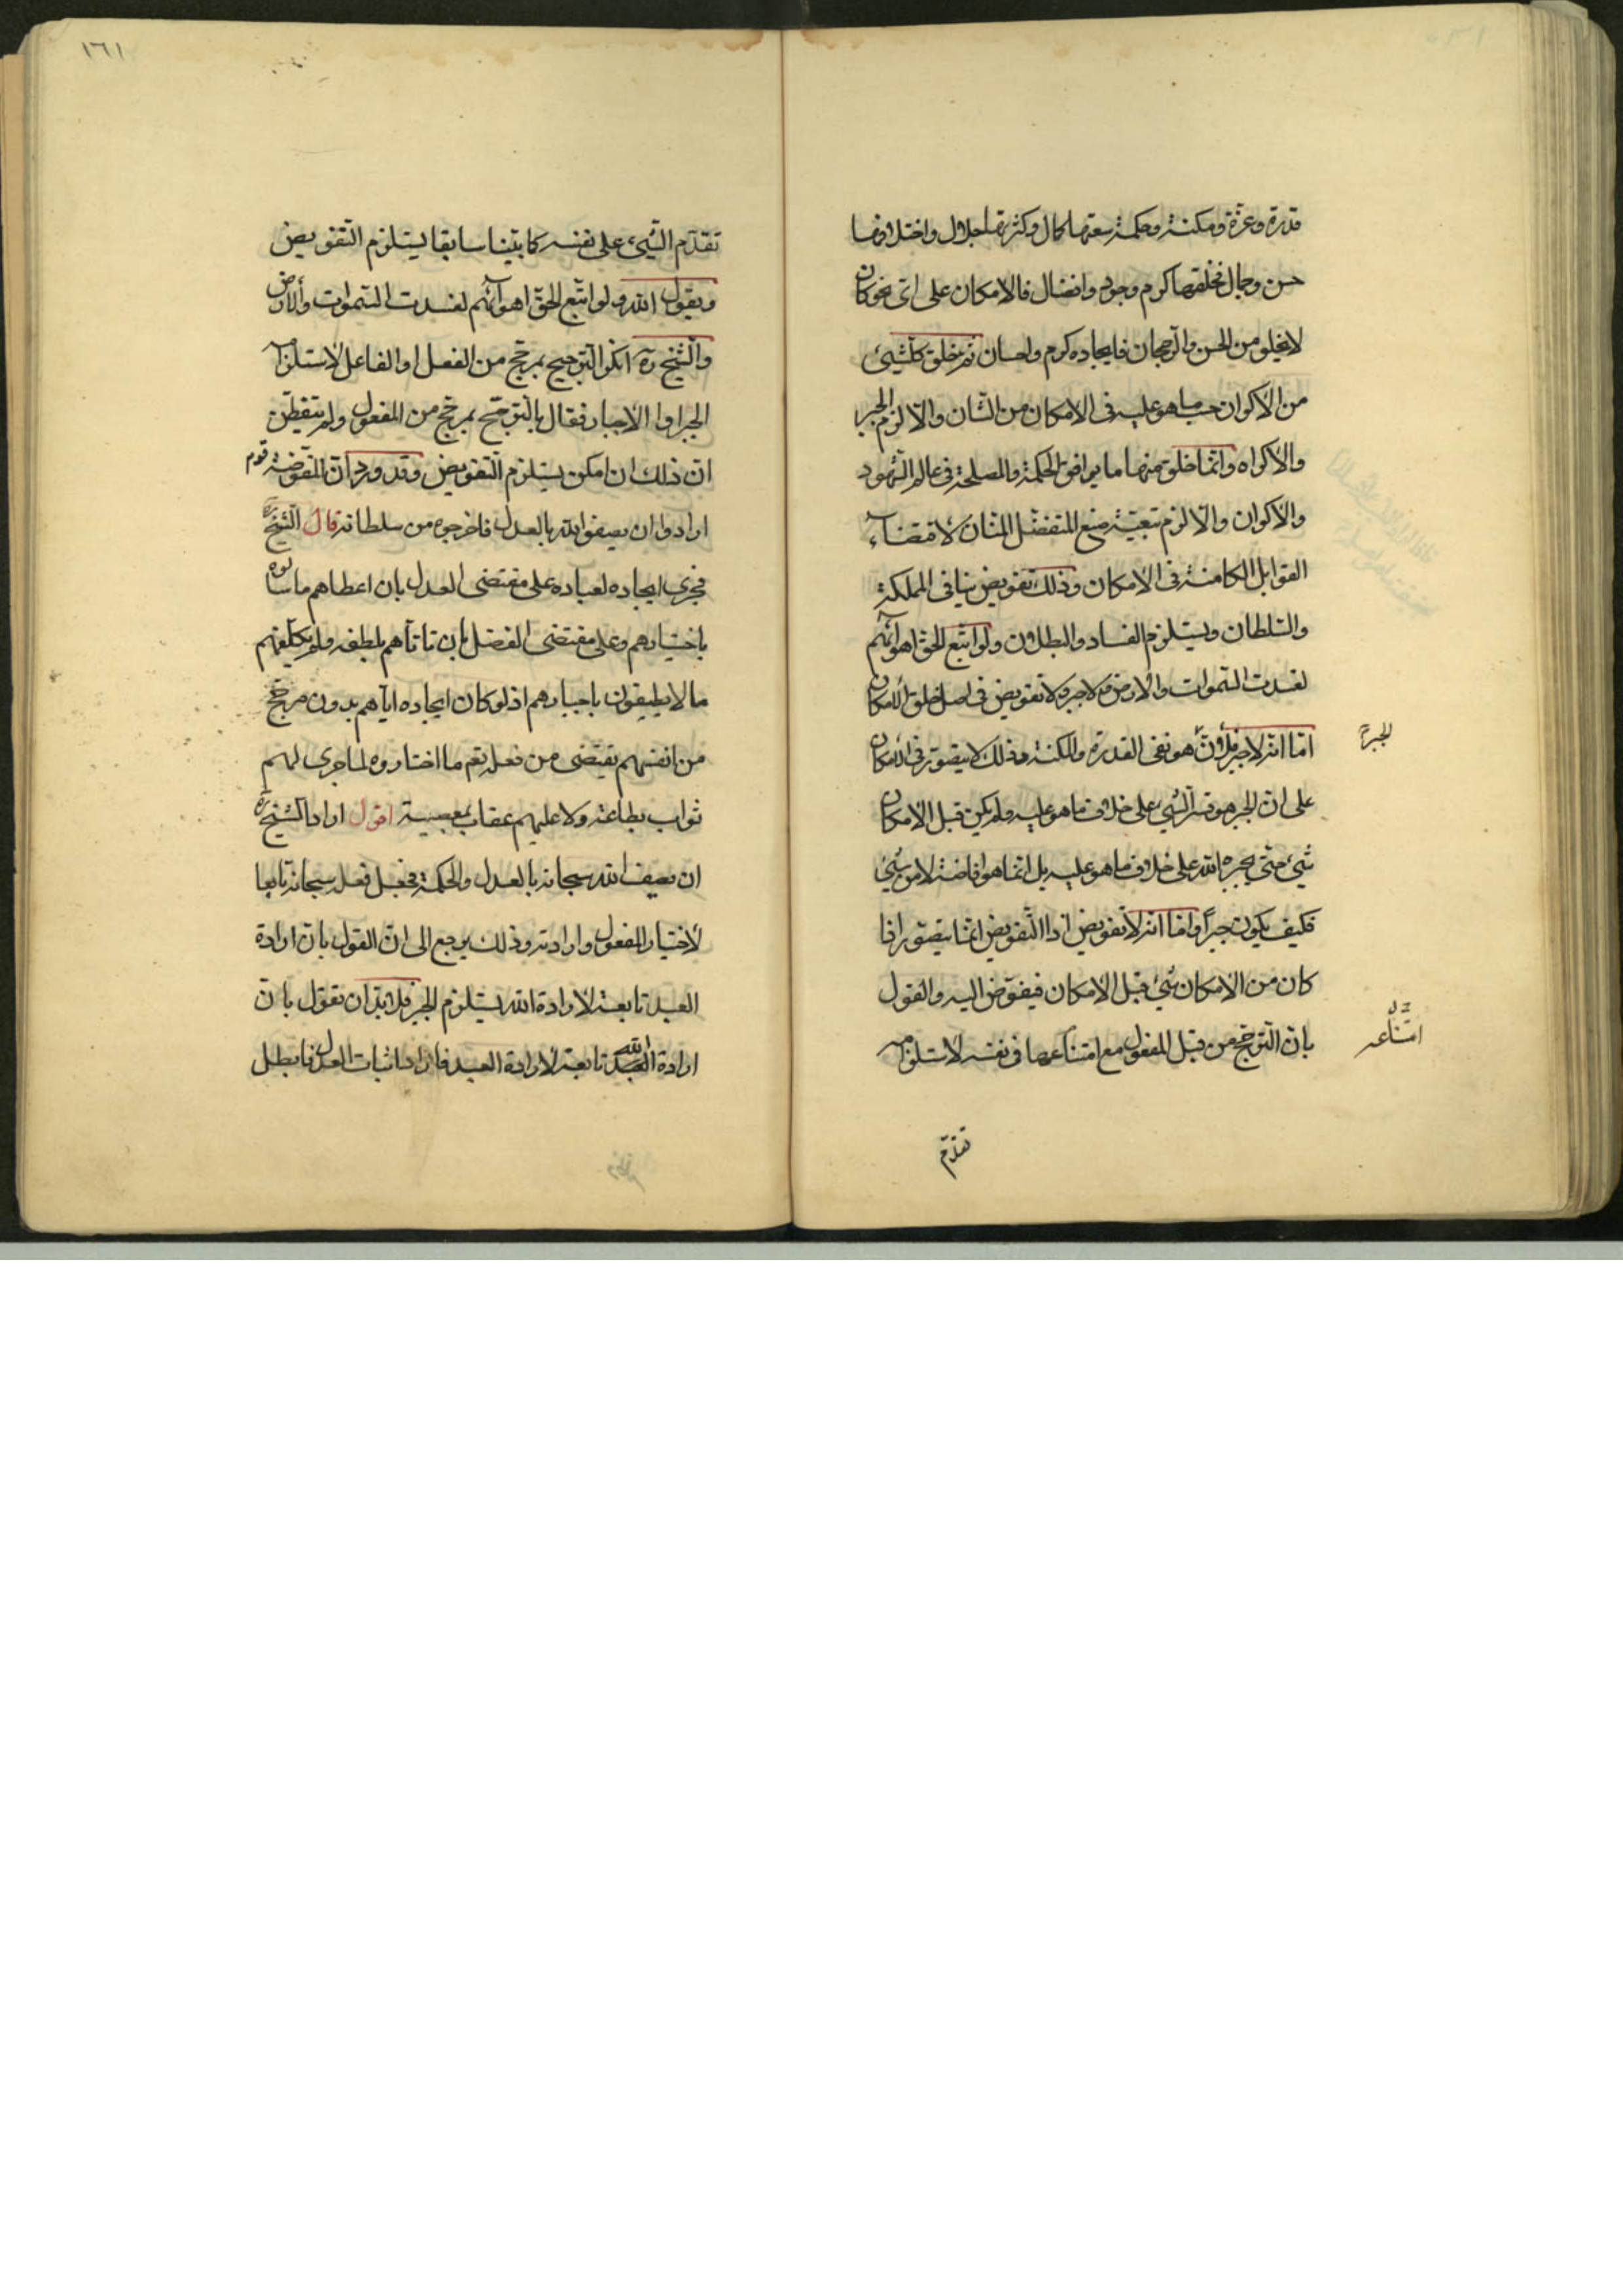 قدرة وعزة ومكنة وحكمة سعتها كمال وكثرتها جلال واختلافها
حسن وجمال فخلقها كرم وجود وافضال فالامكان على اىّ نحو كان
لا يخلو من الحسن والرجحان فايجاده كرم واحسان ثم خلق كلّ شيئ
من الأكوان حسب ما هو عليه فى الامكان من الشأن والّا لزم الجبر
والاكراه وانّما خلق منها ما يوافق الحكمة والمصلحة فى عالم الشهود
والأكوان والّا لزم تبعيّة صنع المتفضّل المنّان لأقتضاء
القوابل الكامنة فى الأمكان وذلك تفويض ينافى المملكة
والسّلطان ويستلزم الفساد والبطلان ولو اتّبع الحقّ اهوائهم
لفسدت السّموات والأرض فلا جبر ولا تفويض فى اصل خلق الأمكان
امّا انّه لا جبر فلأنّ هو نفى القدرة والمكنة وذلك لا يتصوّر فى الأمكان
الجبر
على انّ الجبر هو قسر الشّيئ على خلاف ما هو عليه ولم يكن قبل الامكان
شيئ حتّى يجبره الله على خلاف ما هو عليه بل انّما هو افاضة لا من شيئ
فكيف يكون جبراً وامّا انّه لا تفويض اذ التّفويض انّما يتصوّر اذا
كان من الأمكان شيئ قبل الأمكان فيفوّض اليه والقول
بانّ التّرجّح من قبل المفعول مع امتناعها فى نفسه لاستلزامه
امتناعه
تقدّم
١٦١
تقدّم الشّيئ على نفسه كما بيّنا سابقا يستلزم التّفويض
ويقول الله ولو اتّبع الحقّ اهوائهم لفسدت السّموات والأرض
والشّيخ ره انكر التّرجيح بمرجّح من الفعل او الفاعل لاستلزامه
الجبر او الاجبار فقال بالتّرجّح بمرجّح من المفعول ولم يتفطّن
انّ ذلك ان امكن يستلزم التّفويض وقد ورد انّ المفوّضة قوم
ارادوا ان يصفوا الله بالعدل فاخرجوه من سلطانه قال الشّيخ ره
فجرى ايجاده لعباده على مقتضى العدل بان اعطاهم ما سألوه
باختيارهم وعلى مقتضى الفضل بان تأتاهم بلطفه ولم يكلّفهم
ما لا يطيقون باجبارهم اذ لو كان ايجاده ايّاهم بدون مرجّح
من انفسهم يقتضى من فعله بهم ما اختاروه لما جرى لهم
ثواب بطاعة ولا عليهم عقاب بمعصية اقول اراد الشّيخ ره
ان يصف الله سبحانه بالعدل والحكمة فجعل فعله سبحانه تابعا
لأختيار المفعول وارادته وذلك يرجع الى انّ القول بانّ ارادة
العبد تابعة لأرادة الله يستلزم الجبر فلابدّ ان نقول بانّ
ارادة الله تابعة لأرادة العبد فاراد اثبات العدل فابطل